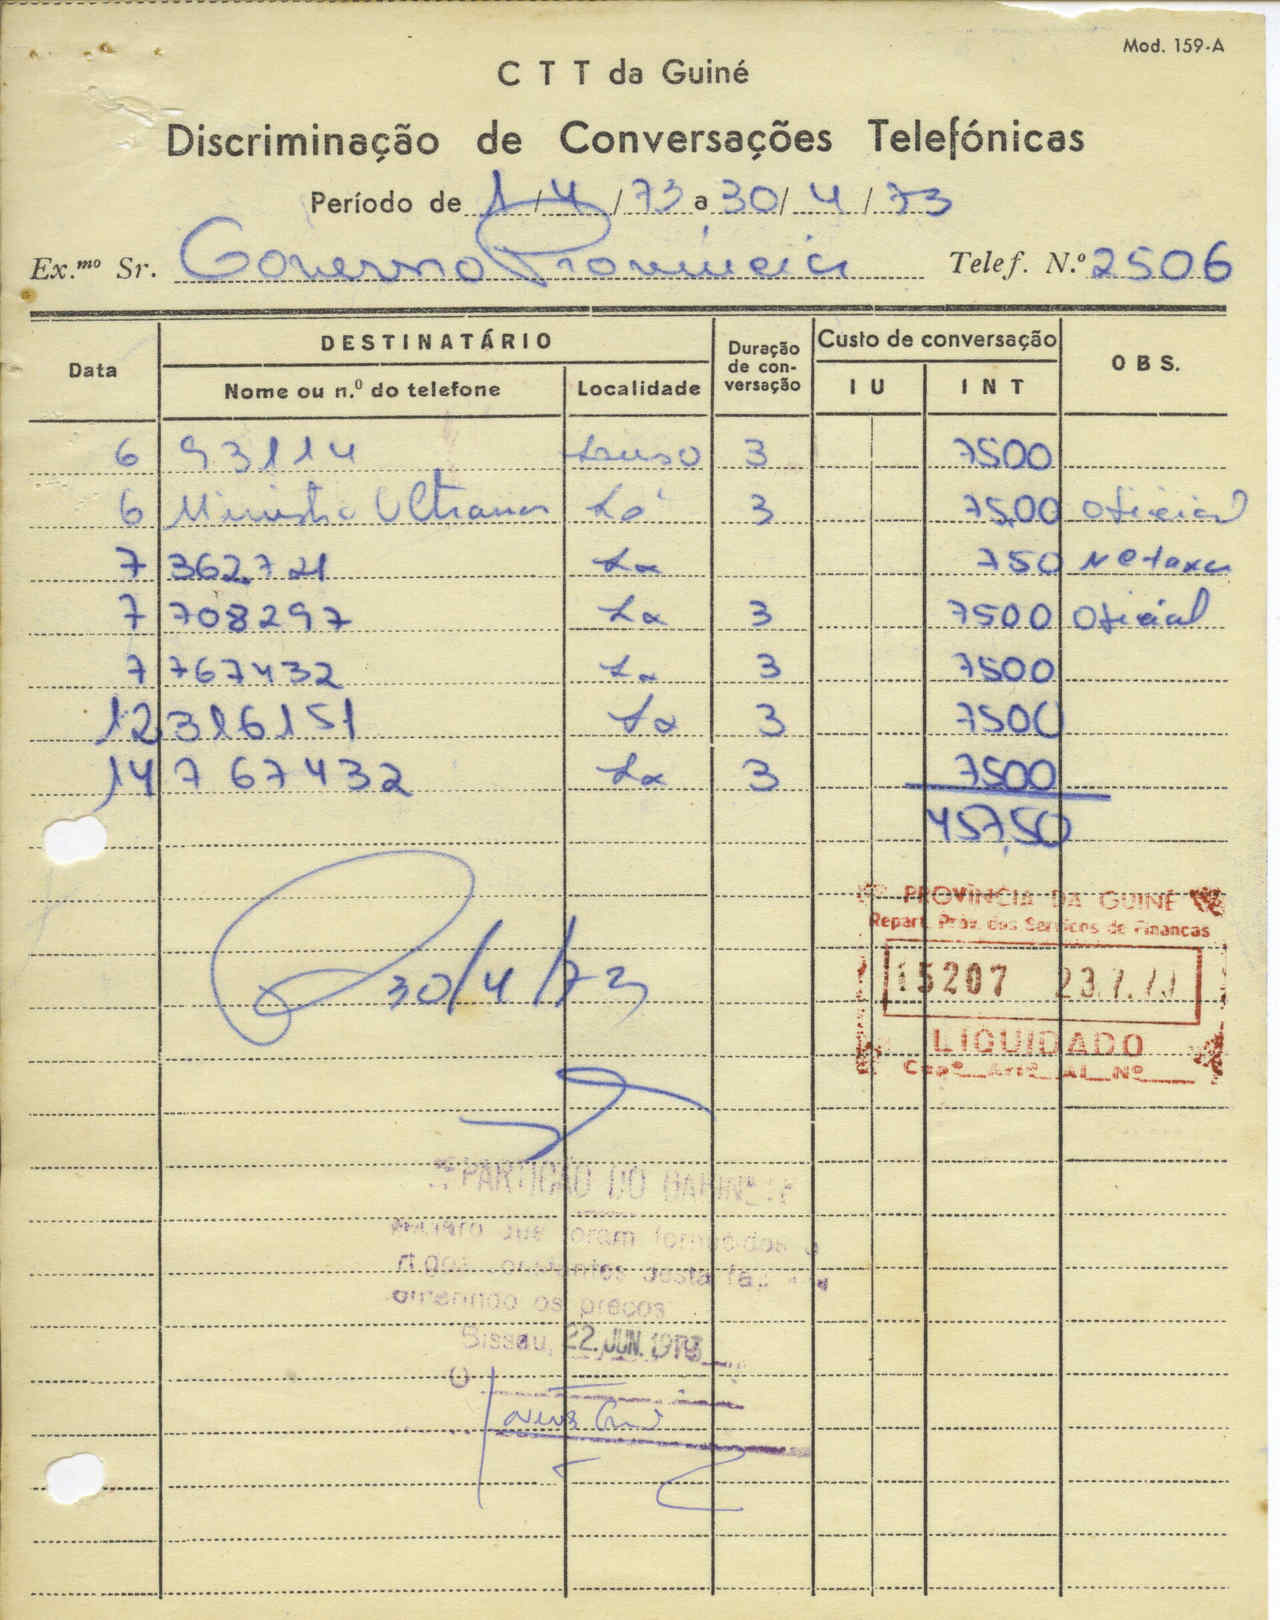 Mod. 159-A
C T T da Guiné
Discriminação de Conversações Telefónicas
Período de 1/4/73 a 30/4/73
Ex.mo Sr. Governo Provincia Telef. N.º 2506
Data DESTINATÁRIO Duração de con-versação Custo de conversação OBS.
Nome ou n.º do telefone Localidade I U I N T
6 93114 3 7500
6 Ministro Ultramar Lx 3 7500 Oficial
7 362721 Lx 750 Nª taxa
7 708297 Lx 3 7500 Oficial
7 767432 Lx 3 7500
12 316151 Lx 3 7500
14 767432 Lx 3 7500
457,50
PROVÍNCIA DA GUINÉ
Repart. Prov. dos Serviços de Finanças
30/4/73
15207 23.7.73
LIQUIDADO
Capº Artº Al Nº
REPARTIÇÃO DO GABINETE
que foram fornecidos
desta
os preços
Bissau, 22. JUN. 1973
O